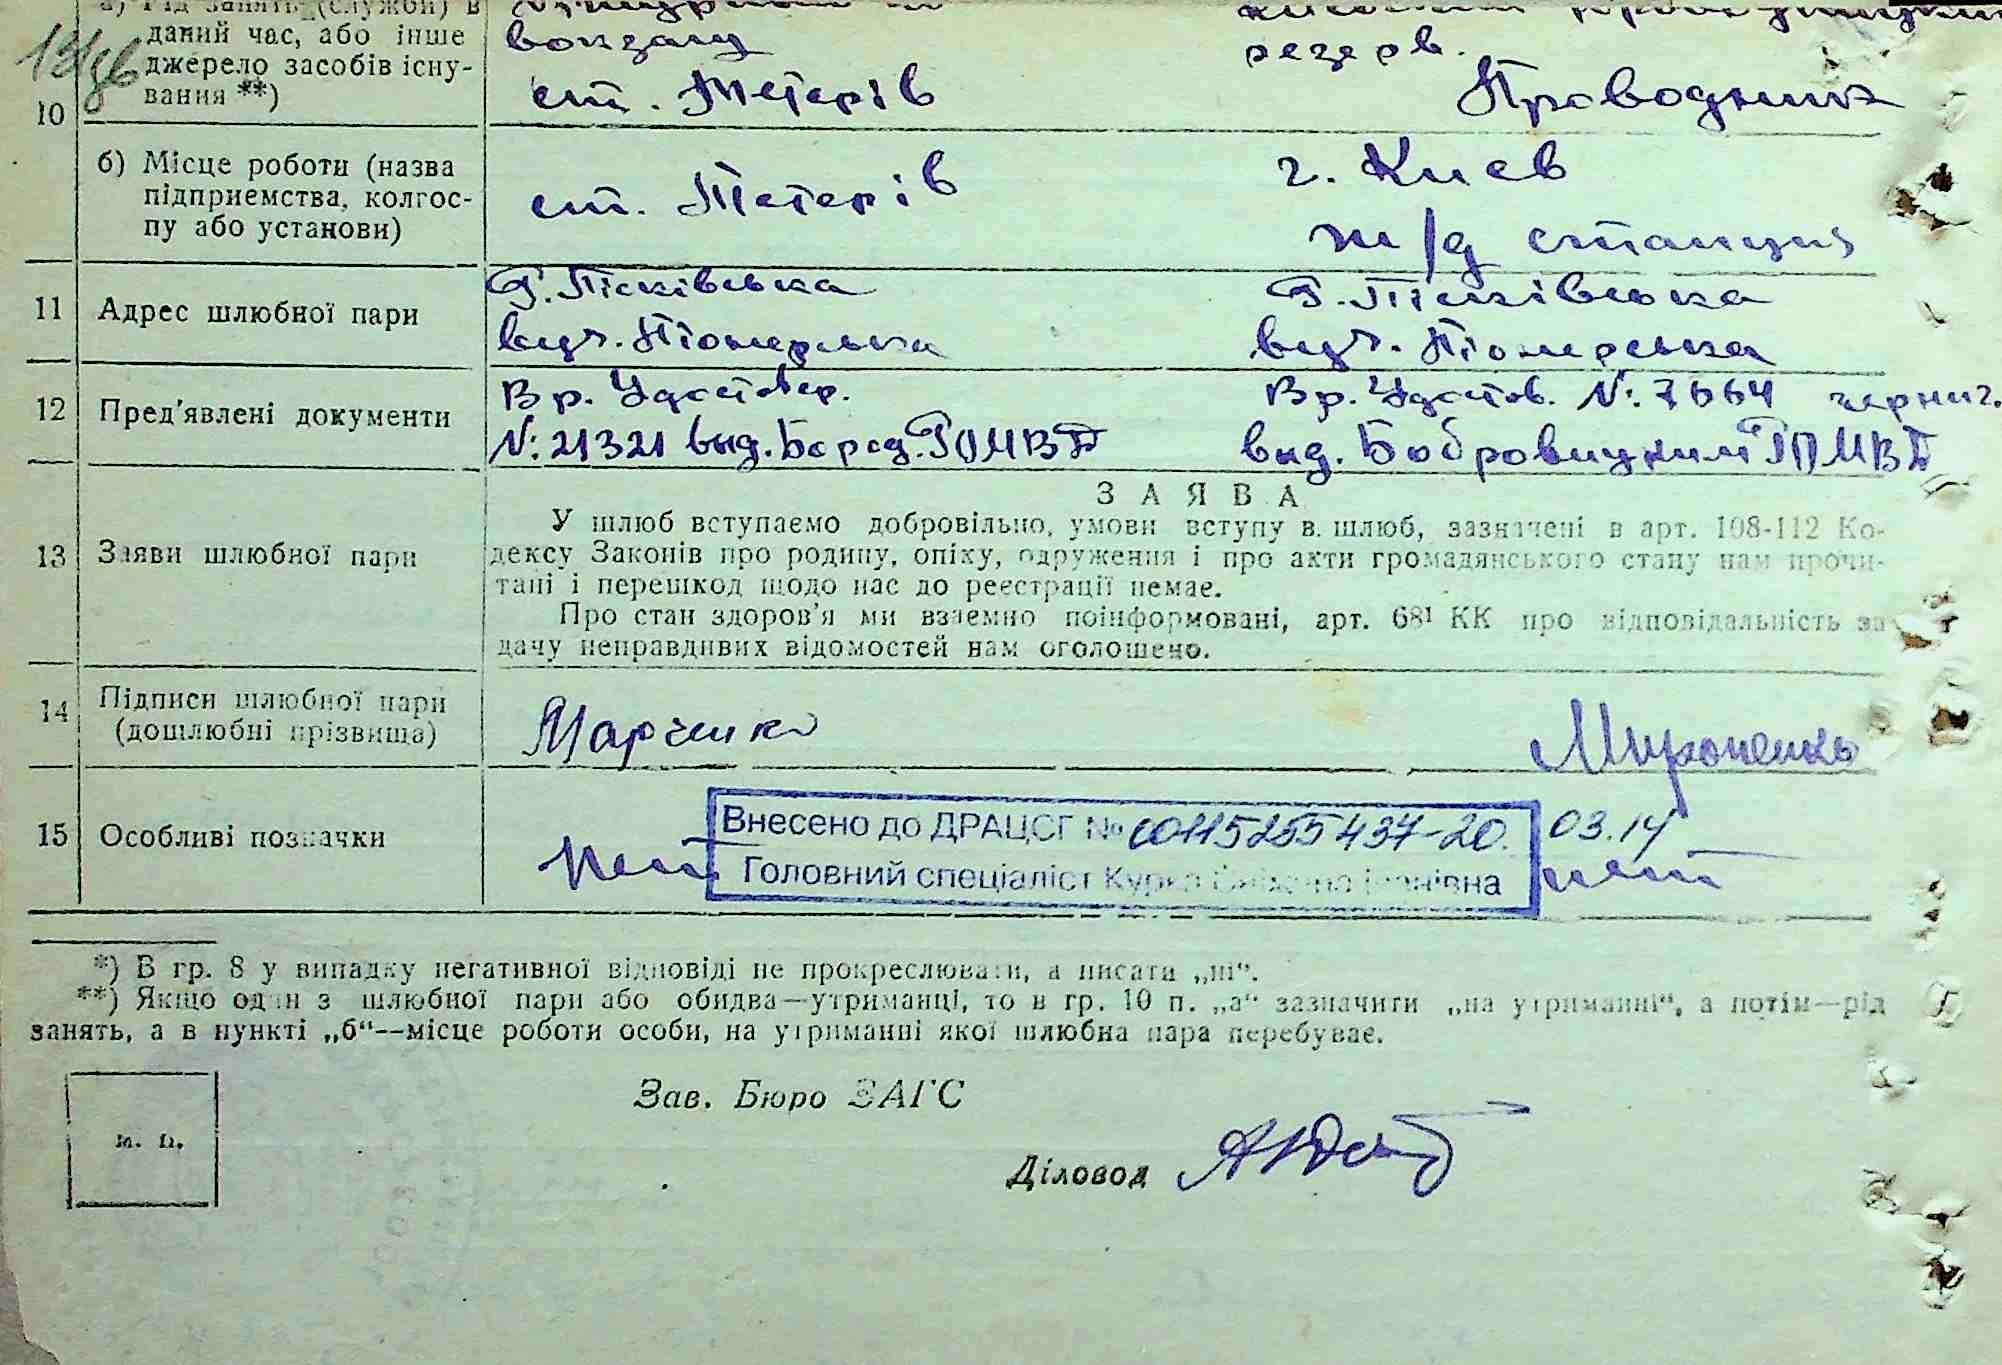 а) Рід занять (служби) в
даний час, або інше
джерело засобів існу-
вання **)
10
вокзалу
ст. Тетерів
резерв.
Проводник
б) Місце роботи (назва
підприємства, колгос-
пу або установи)
ст. Тетерів
г. Киев
ж/д станция
11 Адрес шлюбної пари
Р. Пісківська
вул. Піонерська
Р. Пісківська
вул. Піонерська
12 Пред'явлені документи
Вр. Удостовер.
№: 21321 выд. Бород. РОМВД
Вр. Удостов. №: 7664 черниг.
выд. Бобровицким РОМВД
13 Заяви шлюбної пари
ЗАЯВА
У шлюб вступаємо добровільно, умови вступу в шлюб, зазначені в арт. 108-112 Ко-
дексу Законів про родину, опіку, одруження і про акти громадянського стану нам прочи-
тані і перешкод щодо нас до реєстрації немає.
Про стан здоров'я ми взаємно поінформовані, арт. 68¹ КК про відповідальність за
дачу неправдивих відомостей нам оголошено.
14 Підписи шлюбної пари
(дошлюбні прізвища)
Марченко
Мироненко
15 Особливі позначки
нет
Внесено до ДРАЦСГ № 00115255437-20. 03.14
Головний спеціаліст Курка Сніжана Іванівна
нет
*) В гр. 8 у випадку негативної відповіді не прокреслювати, а писати „ні“.
**) Якщо один з шлюбної пари або обидва—утриманці, то в гр. 10 п. „а“ зазначити „на утриманні“, а потім—рід
занять, а в пункті „б“—місце роботи особи, на утриманні якої шлюбна пара перебуває.
Зав. Бюро ЗАГС
м. п.
Діловод